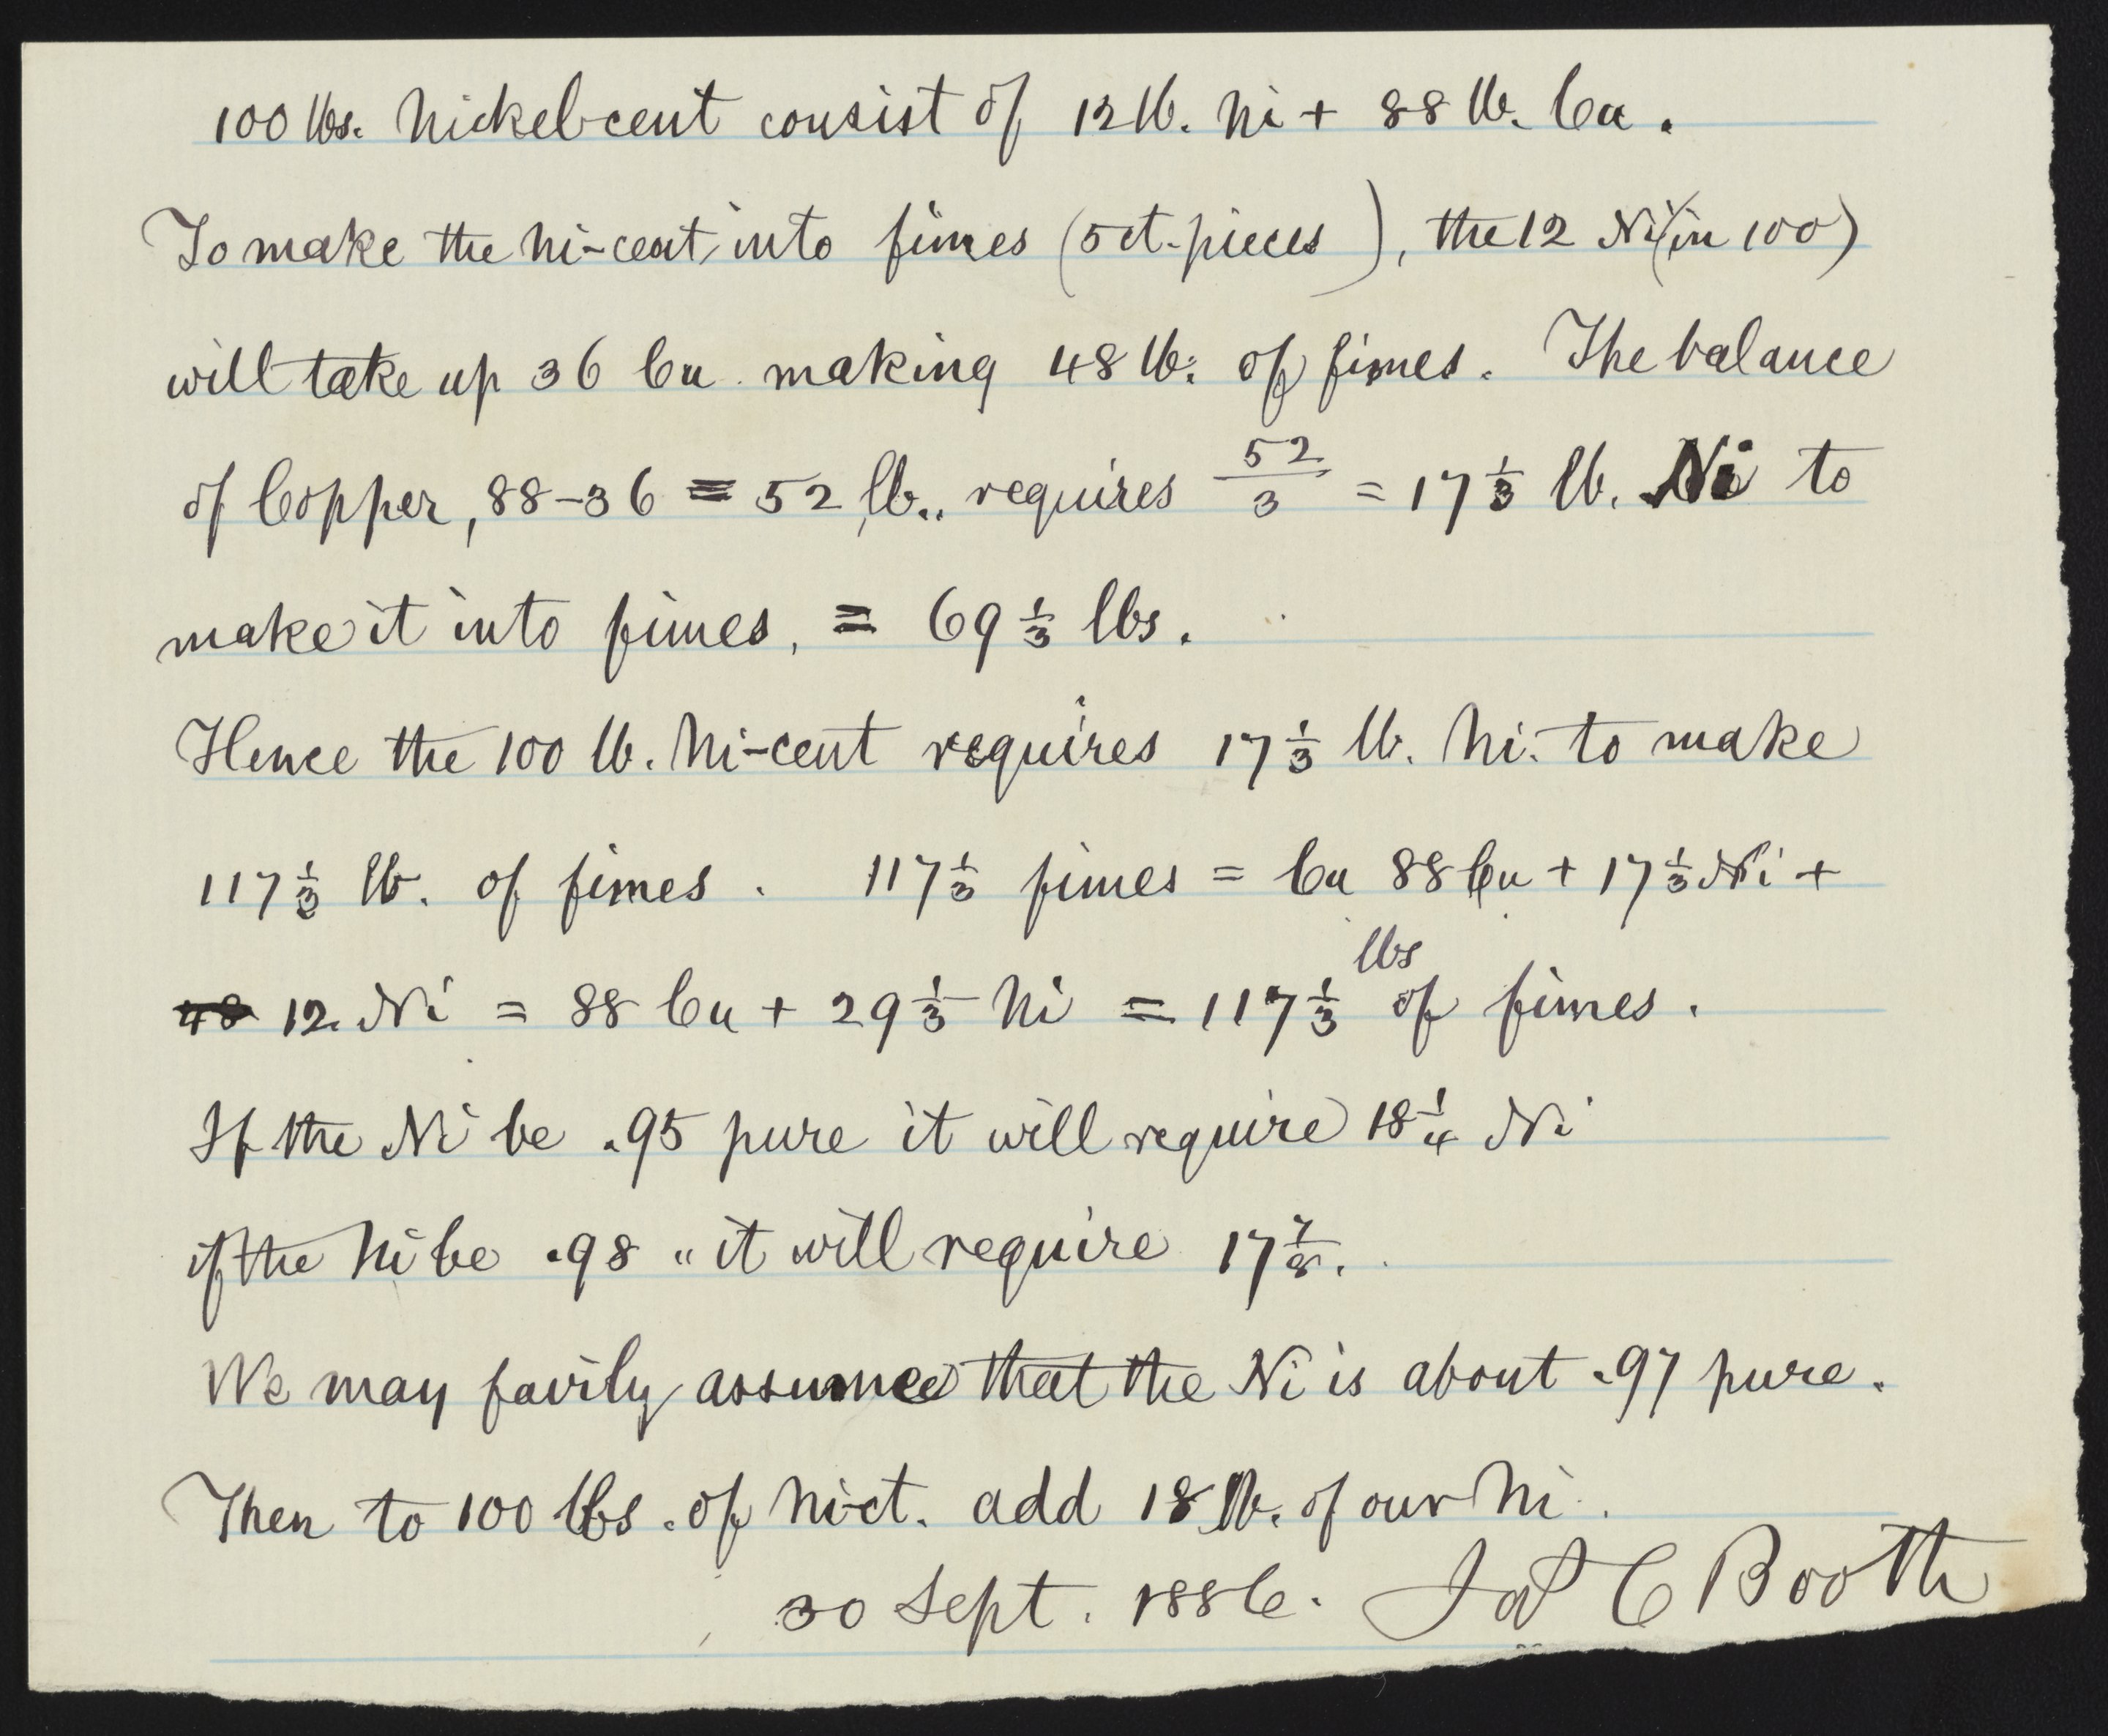 100 lbs. Nickel-cent consist of 12 lb. Ni + 88 lb. Cu.
To make the Ni-cent into fimes (5 ct. pieces), the 12 Ni (in 100)
will take up 36 Cu making 48 lb. of fimes. The balance
of Copper, 88-36 = 52 lb., requires 52/3 = 17 1/3 lb. Ni to
make it into fimes, = 69 1/3 lbs.
Hence the 100 lb. Ni-cent requires 17 1/3 lb. Ni. to make
117 1/3 lb. of fimes. 117 1/3 fimes = Cu 88 Cu + 17 1/3 Ni +
48 12. Ni = 88 Cu + 29 1/3 Ni = 117 1/3 lbs of fimes.
If the Ni be .95 pure it will require 18 1/4 Ni
if the Ni be .98 " it will require 17 7/8.
We may fairly assume that the Ni is about .97 pure.
Then to 100 lbs. of Ni-ct. add 18 lb. of our Ni.
30 Sept. 1886. Jas C Booth